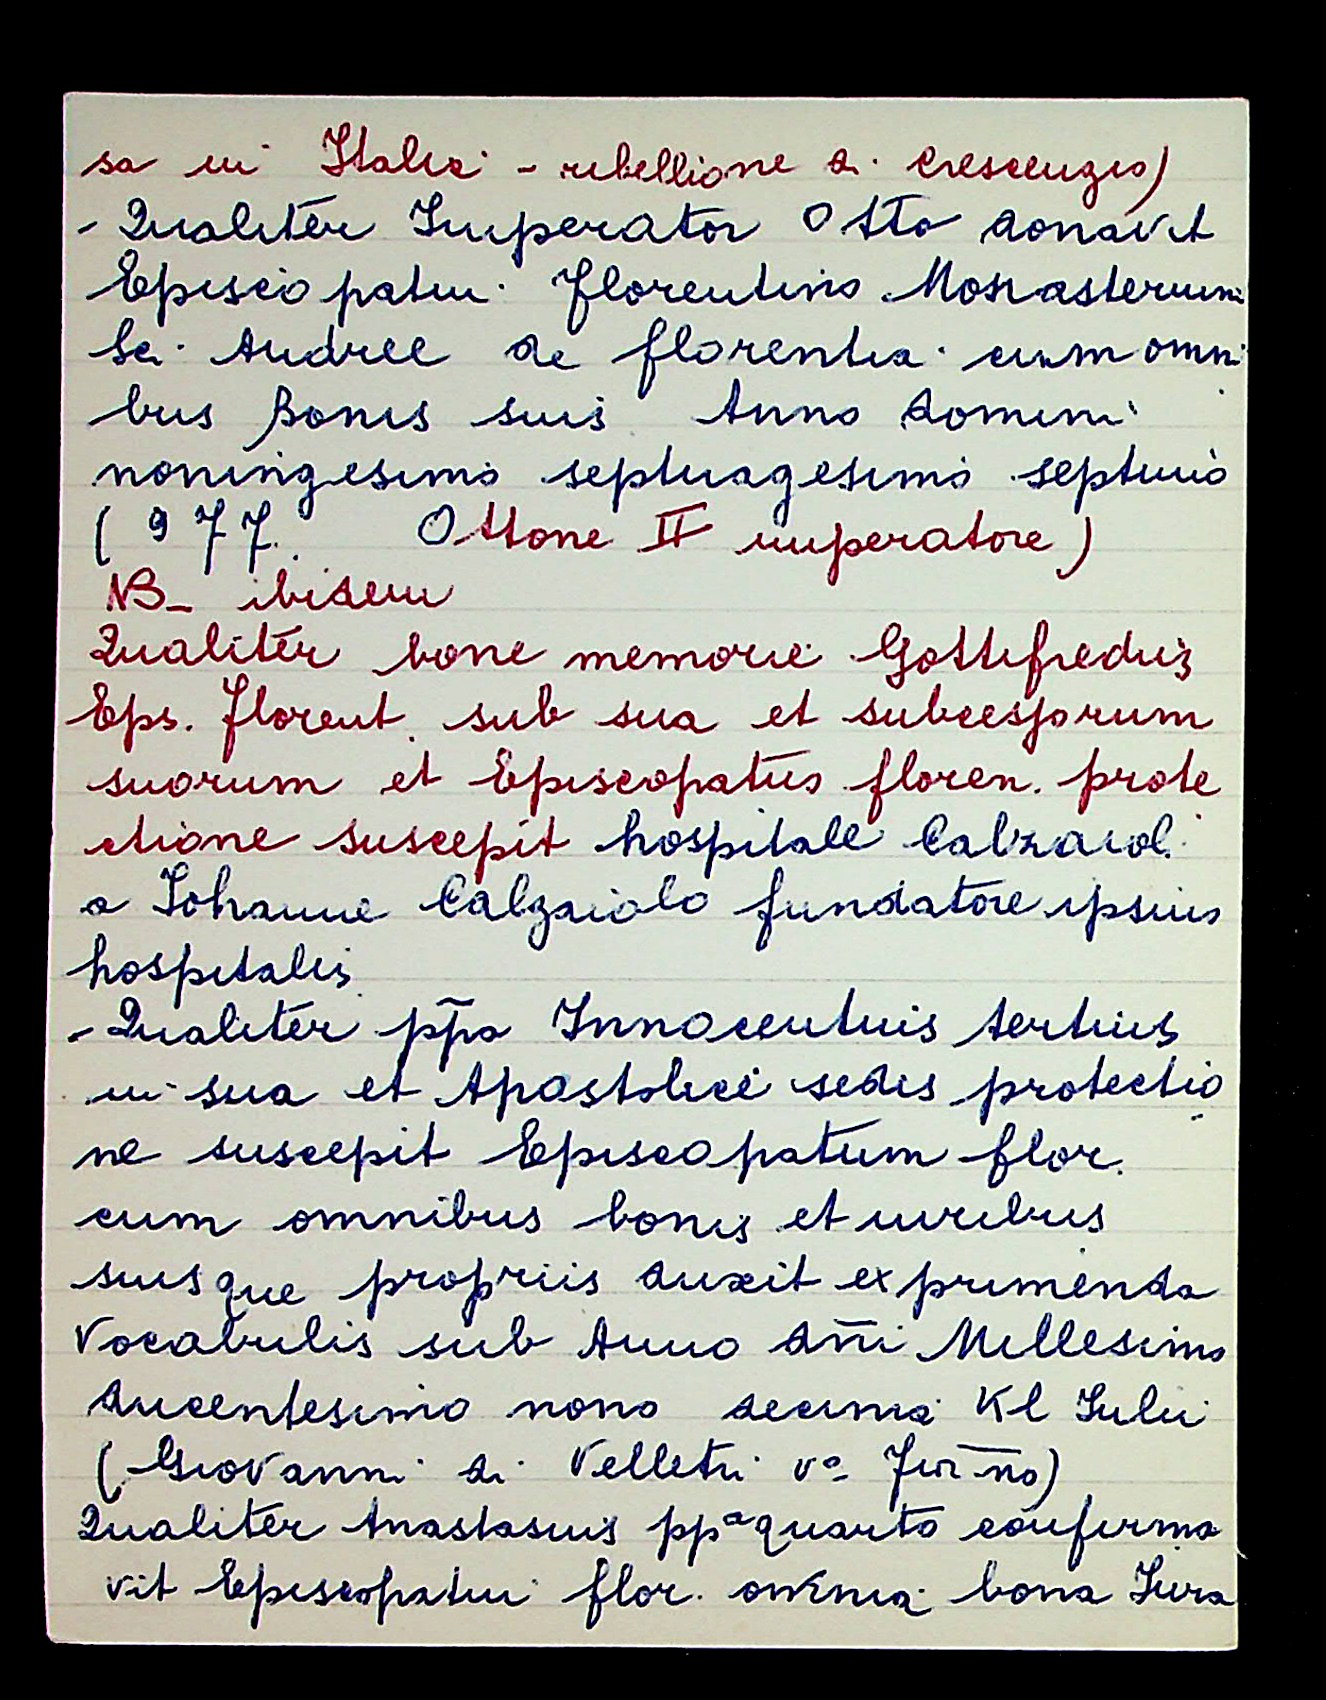 sa in Italia - ribellione di Crescenzio)
- Qualiter Imperator Otto donavit
Episcopatui Florentino Monasterium
Sci Andree de florentia cum omni
bus Bonis suis Anno Domini
noningesimo septuagesimo septimo
(977. Ottone II imperatore)
NB_ ibidem
Qualiter bone memorie Gottifredus
Eps. florent. sub sua et subcessorum
suorum et Episcopatus floren. prote
ctione suscepit hospitale Calzaiol.
a Johanne Calzaiolo fundatore ipsius
hospitalis
- Qualiter pp̃a Innocentius tertius
in sua et Apostolice sedis protectio
ne suscepit Episcopatum flor.
cum omnibus bonis et iuribus
suis que propriis duxit exprimenda
Vocabulis sub Anno dñi Millesimo
ducentesimo nono decima Kl Julii
(Giovanni di Velletri vo)
Qualiter Anastasius ppa quarto confirma
vit Episcopatui flor. omnia bona Jura